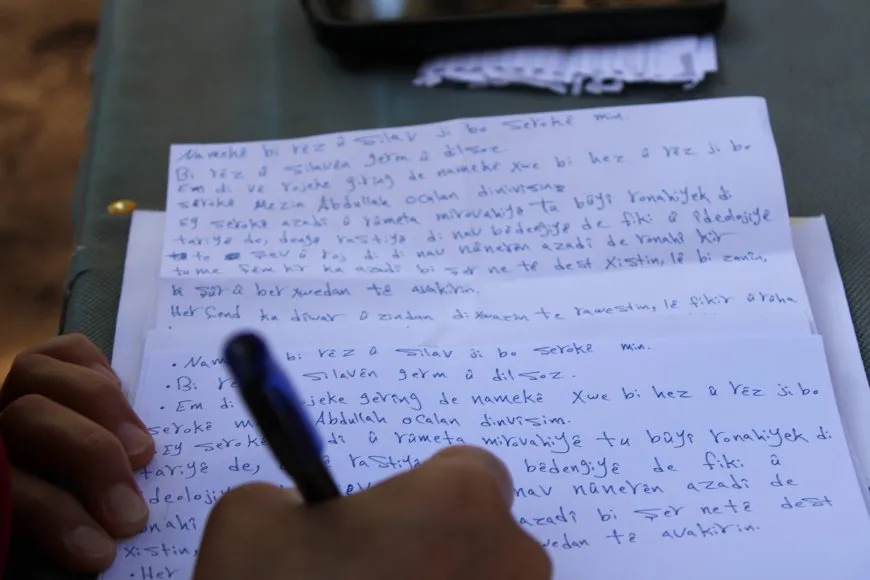 Namekê bi rêz û silav ji bo serokê min.
Bi rêz û silavên germ û dilsoz
Em di vê rojeke giring de namekê xwe bi hez û rêz ji bo
serokê Mezin Abdullah ocalan dinivisin
Ey serokê azadî û rûmeta mirovahiyê tu bûyî ronahiyek di
tariyê de, denge rastiyê di nav bêdengiyê de fikî û ideolojiyê
to şev û roj di di nav nûnerên azadî de ronahî kir
tu me fêm kir ku azadî bi şer ne tê dest xistin, lê bi zanîn,
û ber xwedan tê avakirin.
Her çend ku diwar û zindan di xwazin te rawestin, lê fikir û roha
• bi rêz û silav ji bo serokê min.
• Bi silavên germ û dilsoz.
• Em di gering de namekê xwe bi hez û rêz ji bo
serokê Abdullah ocalan dinvîsim.
Ey serokê û rûmeta mirovahiyê tu bûyî ronahiyek di
tariyê de, bêdengiyê de fikî û
nav nûnerên azadî de
azadî bi şer netê dest
xistin, tê avakirin.
• Her